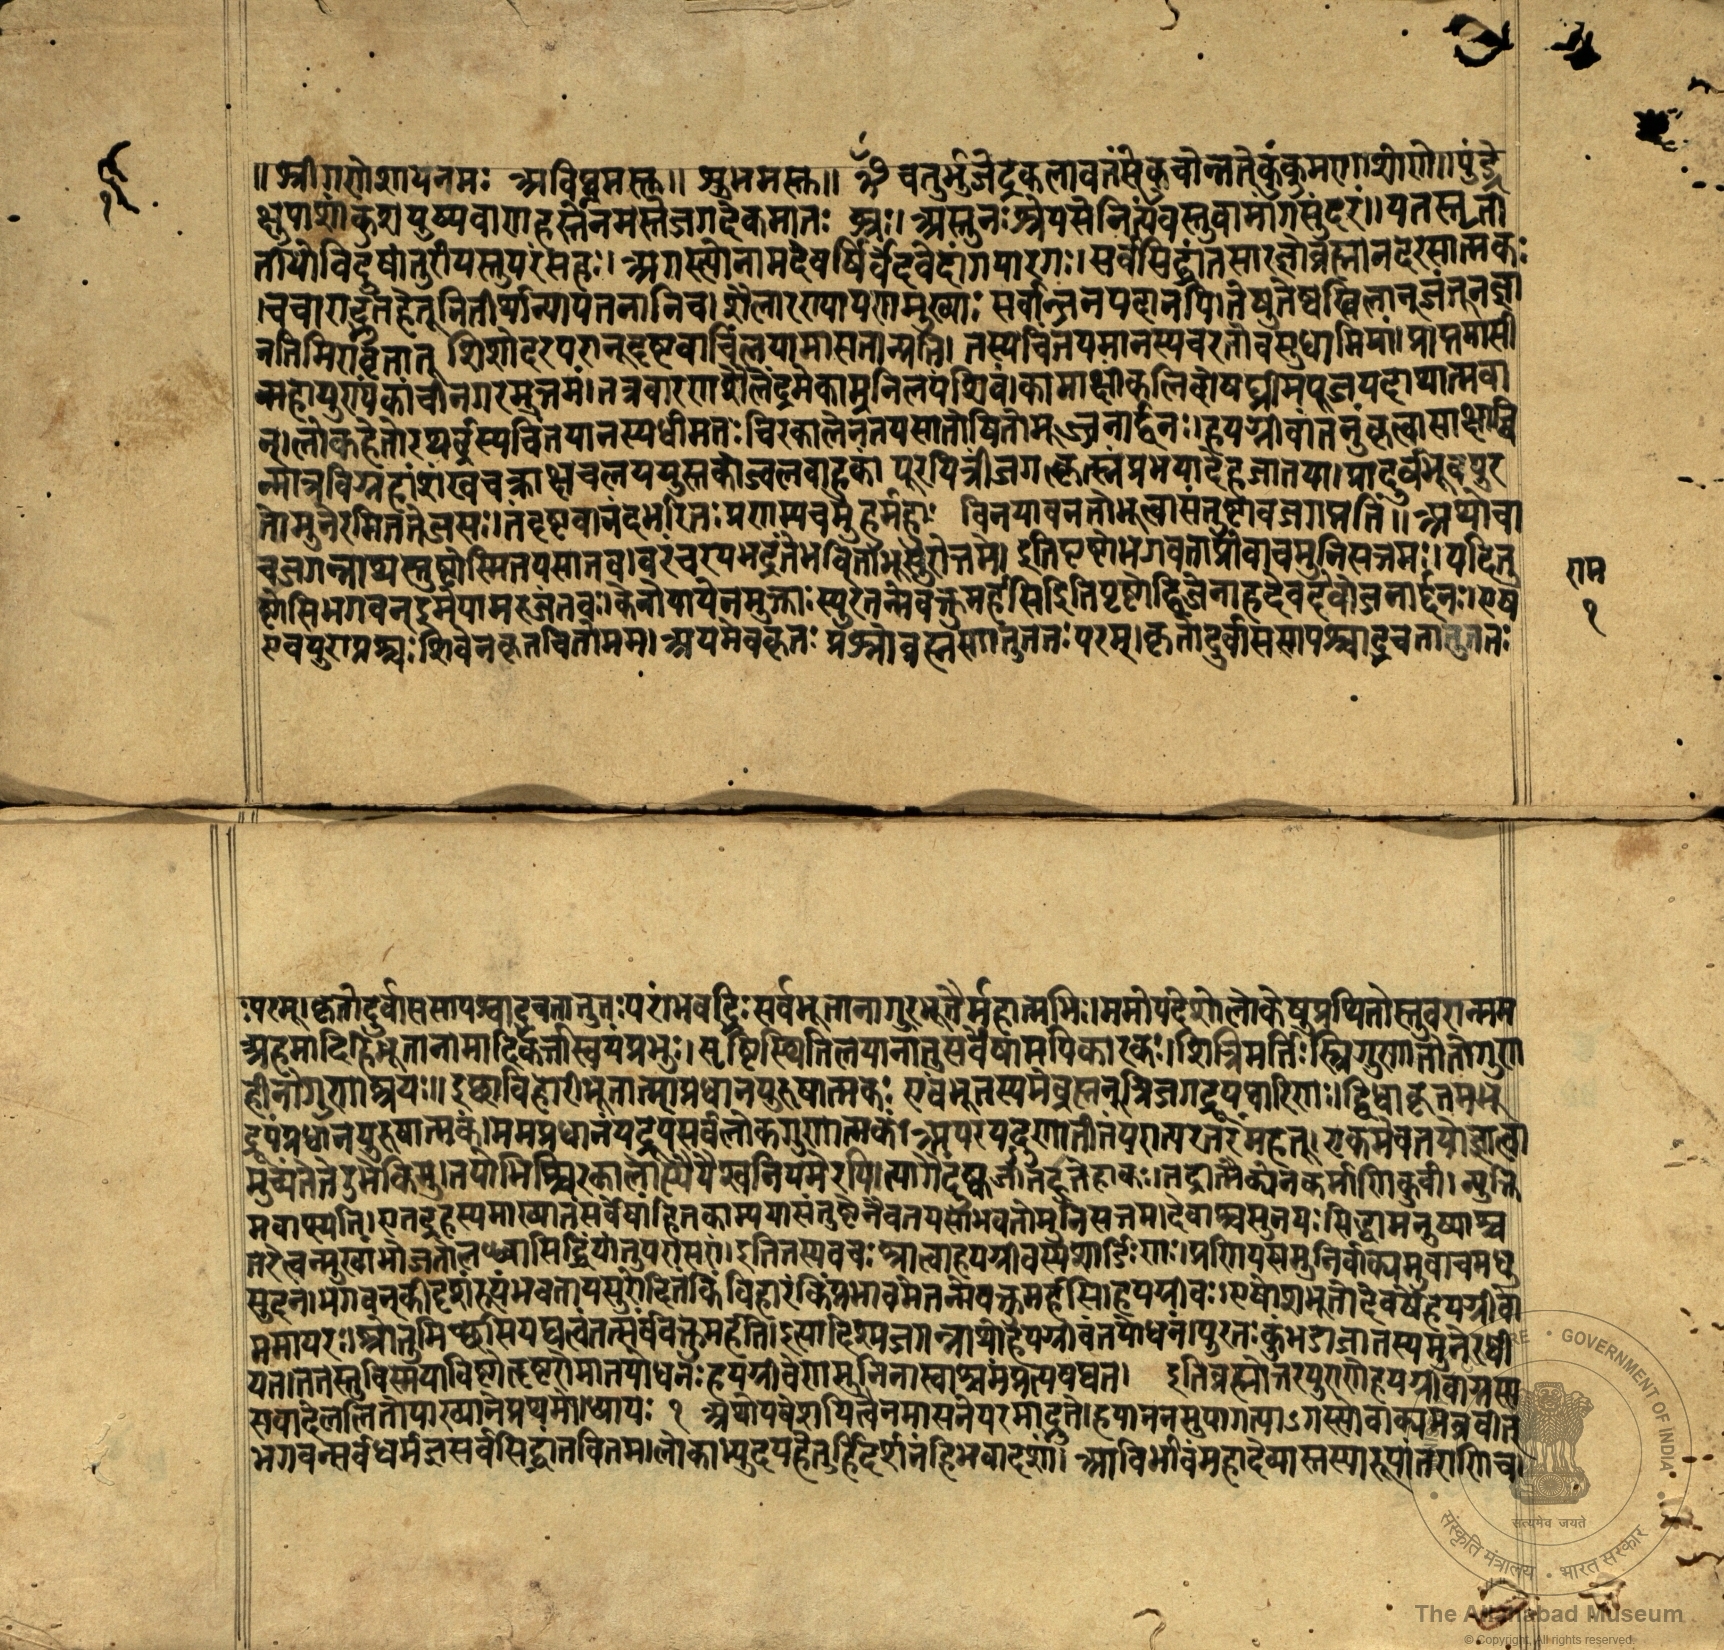 ॥श्रीगणेशायनमः अविघ्नमस्तु॥ शुभमस्तु॥ ॐ चतुर्भुजेचंद्रकलावतंसेकुचोन्नतेकुंकुमरागशोणे॥पुंड्रे
क्षुपाशांकुशपुष्पबाणहस्तेनमस्तेजगदेकमातः अः।अस्तुनःश्रेयसेनित्यंवस्तुवामांगसुंदरं॥यतस्तृती
तीयोविदुषांतुरीयस्तुपरंसतः।अगस्त्योनामदेवर्षिर्वेदवेदांगपारगः।सर्वसिद्धांतसारज्ञोब्रह्मानंदरसात्मकः
।चचाराद्भुतहेतूनितीर्थान्यायतनानिच।शैलारण्यापगामुख्याः सर्वान्जनपदानपि।तेषुतेष्वखिलान्जंतूनज्ञा
नतिमिरावृतान् शिश्नोदरपरान्दृष्ट्वाचिंतयामासतान्प्रति।तस्यचिंतयमानस्यचरतोवसुधामिमां।प्राप्तमासी
न्महापुण्यंकांचीनगरमुत्तमं।तत्रवारणशैलेंद्रमेकाम्रनिलयंशिवं।कामाक्षींकलिदोषघ्नीमपूजयदथात्मवा
न्।लोकहेतोर्दयार्द्रस्यचिंतयानस्यधीमतः चिरकालेनतपसातोषितोभूज्जनार्दनः।हयग्रीवांतनुंकृत्वासाक्षाच्चि
न्मात्रविग्रहांशंखचक्राक्षवलयपुस्तकोज्वलबाहुकां पूरयित्रींजगत्कृत्स्नंप्रभयादेहजातया।प्रादुर्बभूवपुर
तोमुनेरमिततेजसः।तंदृष्ट्वानंदभरितःप्रणम्यचमुहुर्मुहुः विनयावनतोभूत्वासंतुष्टावजगत्पतिं॥अथोवा
चजगन्नाथस्तुष्टोस्मितपसातव।वरंवरयभद्रंतेभविताभूसुरोत्तम। इतिपृष्टोभगवताप्रोवाचमुनिसत्तमः।यदितु
ष्टोसिभगवन्इमेपामरजंतवः।केनोपायेनमुक्ताःस्युरेतन्मेवक्तुमर्हसिइतिपृष्टोद्विजेनाहदेवदेवोजनार्दनः।एष
एवपुराप्रश्नःशिवेनकृतवितोमम।अयमेवकृतः प्रश्नोब्रह्मणातुततःपरम्।कृतोदुर्वाससापश्चाद्भवतातुततः
ःपरम्।कृतोदुर्वाससापश्चाद्भवतातुतःपरंभवद्भिःसर्वभूतानांगुरुभूतैर्महात्मभिः।ममोपदेशोलोकेषुप्रथितोस्तुवरान्मम
अहमादिर्हिभूतानामादिकर्तास्वयंप्रभुः।सृष्टिस्थितिलयानांतुसर्वेषामपिकारकः।त्रिमूर्तिःस्त्रिगुणातीतोगुण
हीनोगुणाश्रयः॥इच्छाविहारोभूतात्माप्रधानपुरुषात्मकः एवंभूतस्यमेब्रह्मन्त्रिजगद्रूपधारिणः।द्विधाकृतमभू
द्रूपंप्रधानपुरुषात्मकं।ममप्रधानंयद्रूपंसर्वलोकगुणात्मकं।अपरंयद्गुणातीतंपरात्परतरंमहत्।एवमेवतयोर्ज्ञात्वा
मुच्यंतेतेउभेकिमु।तपोभिश्चिरकालोत्थैर्यमैश्चनियमैरपि।त्यागैर्दुष्कर्म
मवाप्स्यति।एतद्रहस्यमाख्यातंसर्वेषांहितकाम्यया।संतुष्टेनैवतपसाभवतोमुनिसत्तम।देवाश्चमुनयःसिद्धामनुष्याश्च
इतितस्यवचःश्रुत्वाहयग्रीवस्यशार्ङ्गिणः।प्रणिपत्यसमुनिर्वाक्यमुवाचमधु
सूदनं।भगवन्कीदृशंरूपंभवतायत्पुरोदितंकिंविहारंकिंप्रभावमेतन्मेवक्तुमर्हसि।हयग्रीवः।एषोंशभूतोदेवर्षेहयग्रीवो
ममापरः।श्रोतुमिच्छसियद्यत्त्वंतत्सर्वंवक्तुमर्हति।इत्यादिश्यजगन्नाथोहयग्रीवंतपोधनं।पुरतःकुंभजातस्यमुनेरंतर्धी
यत।ततस्तुविस्मयाविष्टोहृष्टरोमातपोधनः हयग्रीवेणमुनिनास्वाश्रमंप्रत्यपद्यत। इतिब्रह्मोत्तरपुराणेहयग्रीवागस्त्य
संवादेललितोपाख्यानेप्रथमोध्यायः १ अथोपवेशयित्वैनमासनेपरमाद्भुते।हयाननमुपागत्याऽगस्त्योवाक्यमब्रवीत्
भगवन्सर्वधर्मज्ञसर्वसिद्धांतवित्तम।लोकाभ्युदयहेतुर्हिदर्शनंहिभवादृशां। आविर्भावंमहादेव्यास्तस्यारूपांतराणिच
राम
१
सत्यमेव जयते
GOVERNMENT OF INDIA
संस्कृति मंत्रालय • भारत सरकार
The Allahabad Museum
© Copyright, All rights reserved